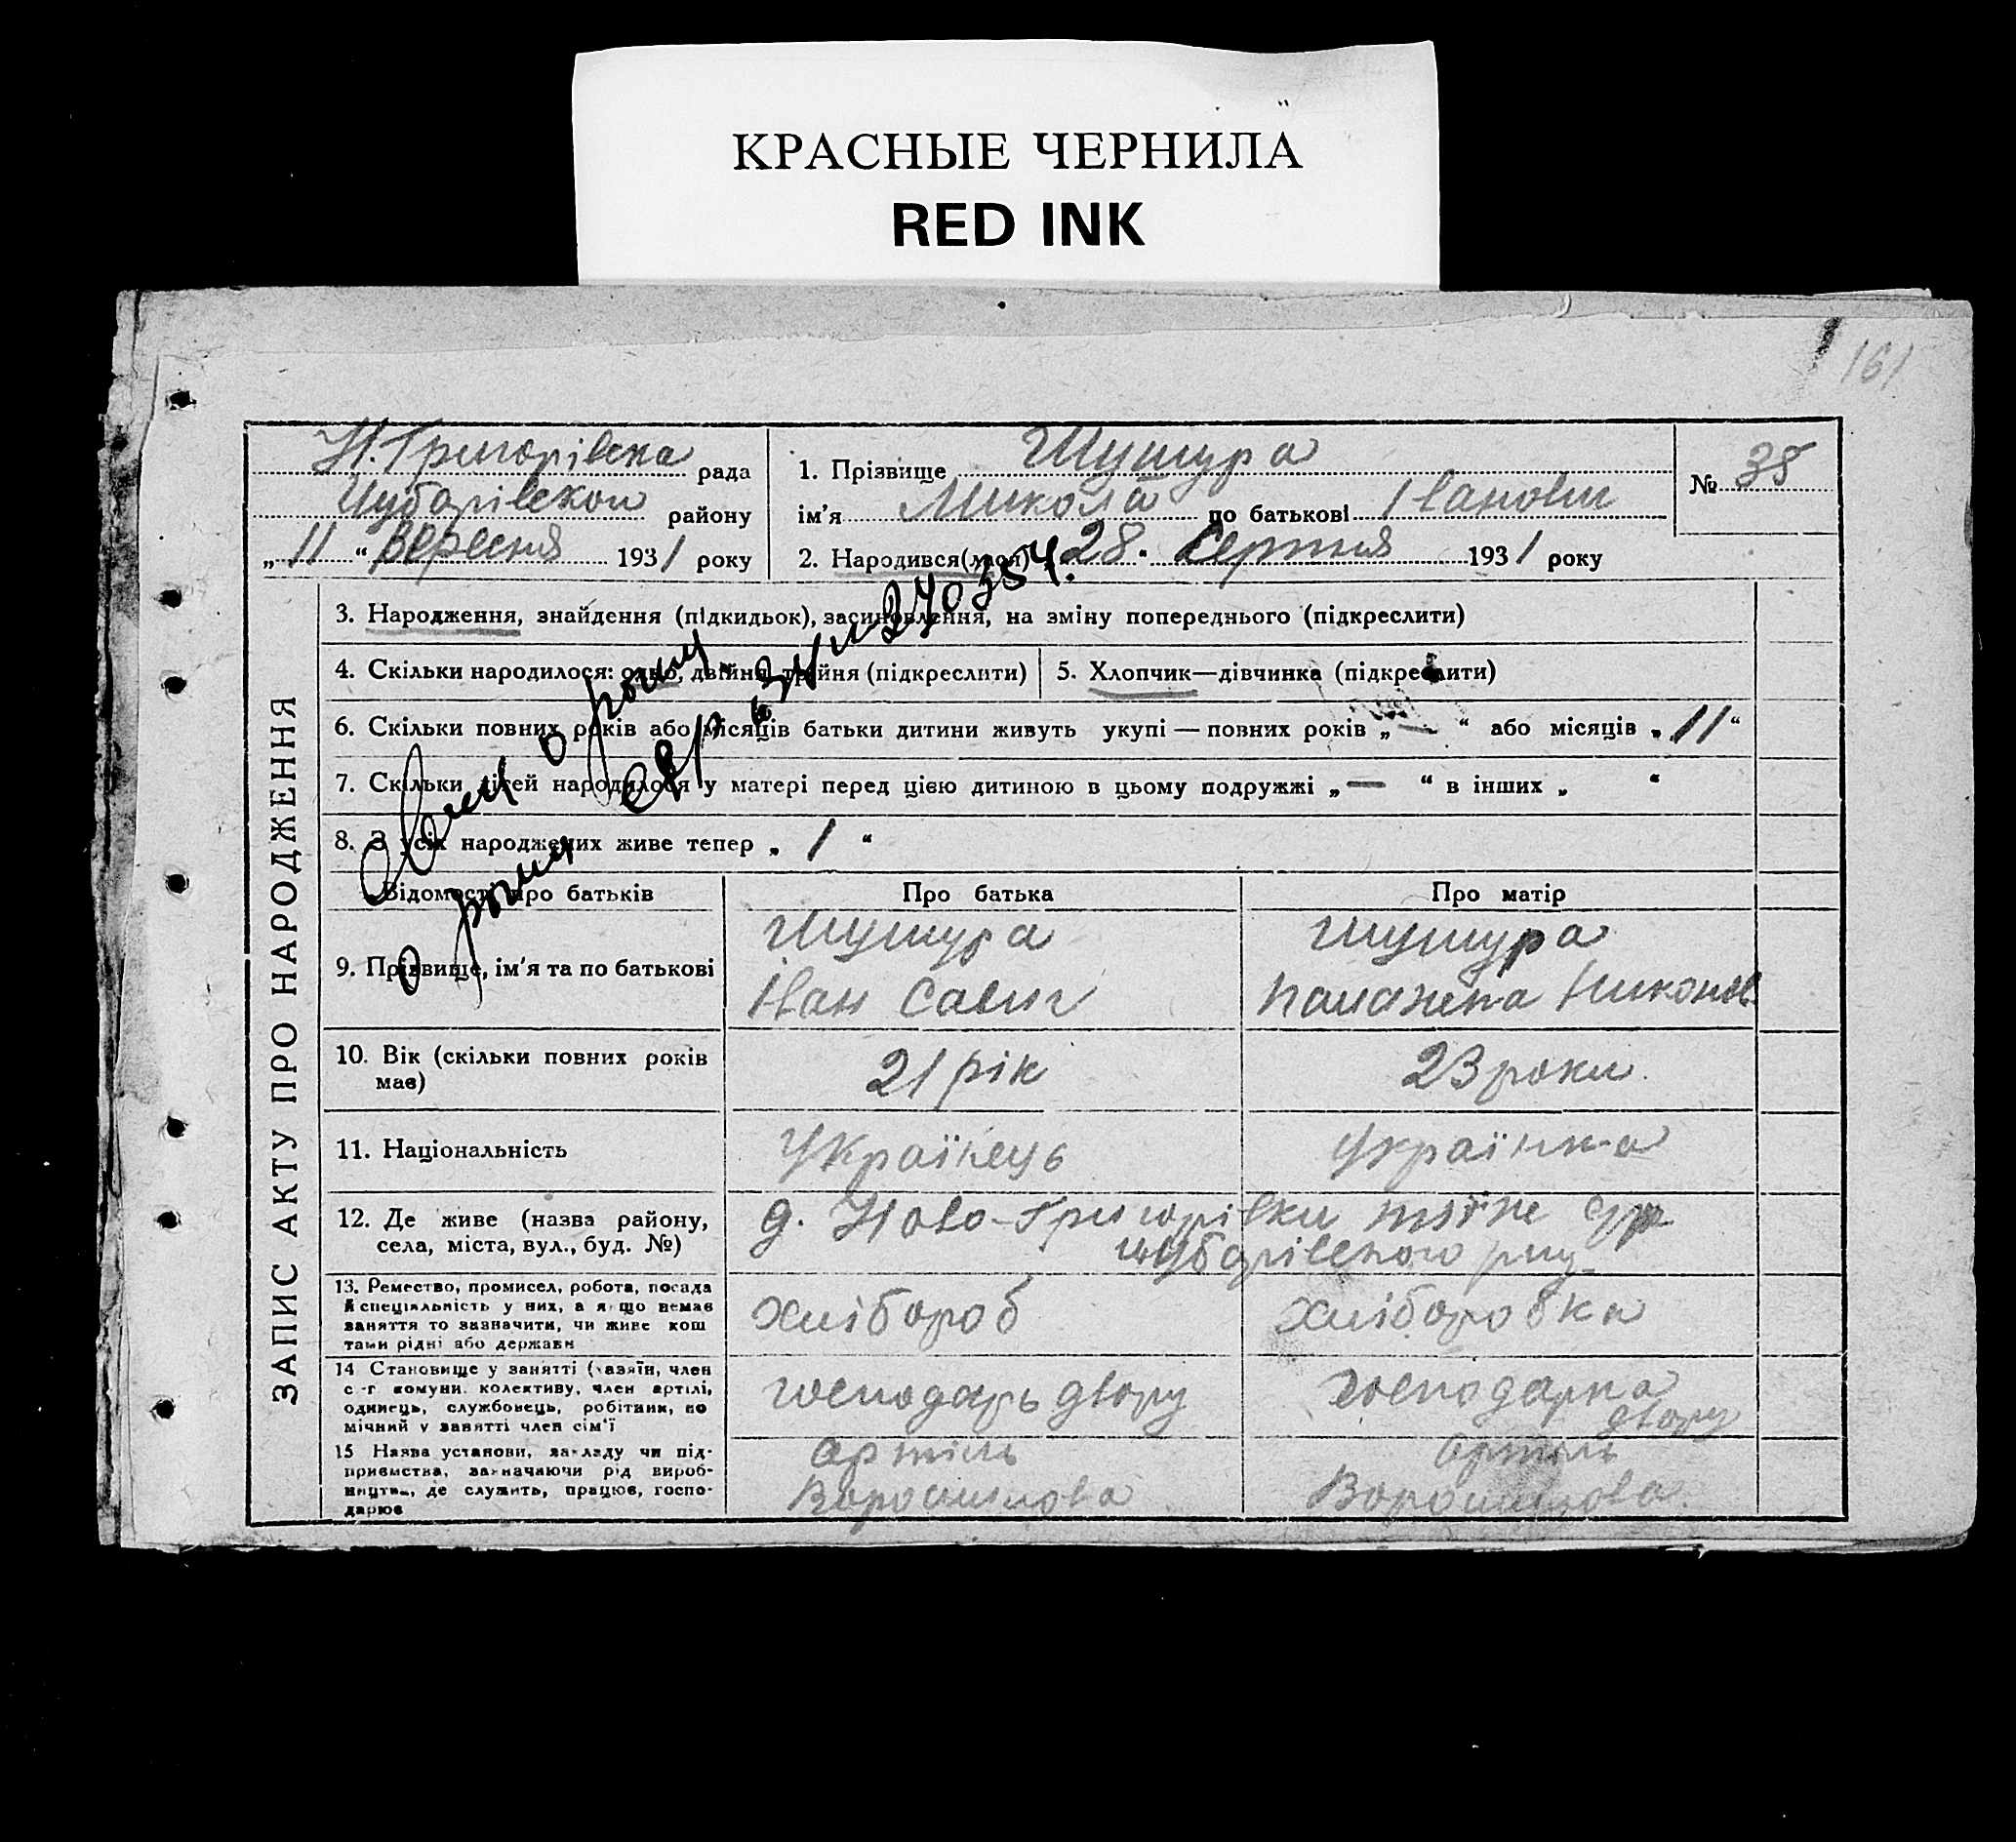 КРАСНЫЕ ЧЕРНИЛА
RED INK
161
Н. Григорівська рада
Чубарівской району
„ 11 “ Вересня 1931 року
1. Прізвище Шушура
ім’я Микола по батькові Іванович
2. Народився(лася) 28. Серпня 1931 року
№ 38
ЗАПИС АКТУ ПРО НАРОДЖЕННЯ
3. Народження, знайдення (підкидьок), засиновлення, на зміну попереднього (підкреслити)
4. Скільки народилося: одно, двійня, трійня (підкреслити)
5. Хлопчик—дівчинка (підкреслити)
6. Скільки повних років або місяців батьки дитини живуть укупі — повних років „ — “ або місяців „ 11 “
7. Скільки дітей народилося у матері перед цією дитиною в цьому подружжі „ — “ в інших „ “
8. З усіх народжених живе тепер „ 1 “
о рожд
о рожд 270354.
Відомості про батьків Про батька Про матір
9. Прізвище, ім’я та по батькові
Шушура
Іван Савич
Шушура
Паланека Никонов
10. Вік (скільки повних років має)
21 рік
23 роки
11. Національність
Українець
Українка
12. Де живе (назва району,
села, міста, вул., буд. №)
д. Ново-Григорівки
Чубарівского
13. Ремество, промисел, робота, посада
й спеціяльність у них, а якщо немає
заняття то зазначити, чи живе кош
тами рідні або держави
хлібороб
хліборобка
14 Становище у занятті (хазяїн, член
с-г комуни, колективу, член артілі,
одинець, службовець, робітник, по
мічний у занятті член сім’ї
господарь двору
господарка
двору
15 Назва установи, закладу чи під-
приємства, зазначаючи рід вироб-
ництва, де служить, працює, госпо-
дарює
артіль
Ворошилова
артіль
Ворошилова